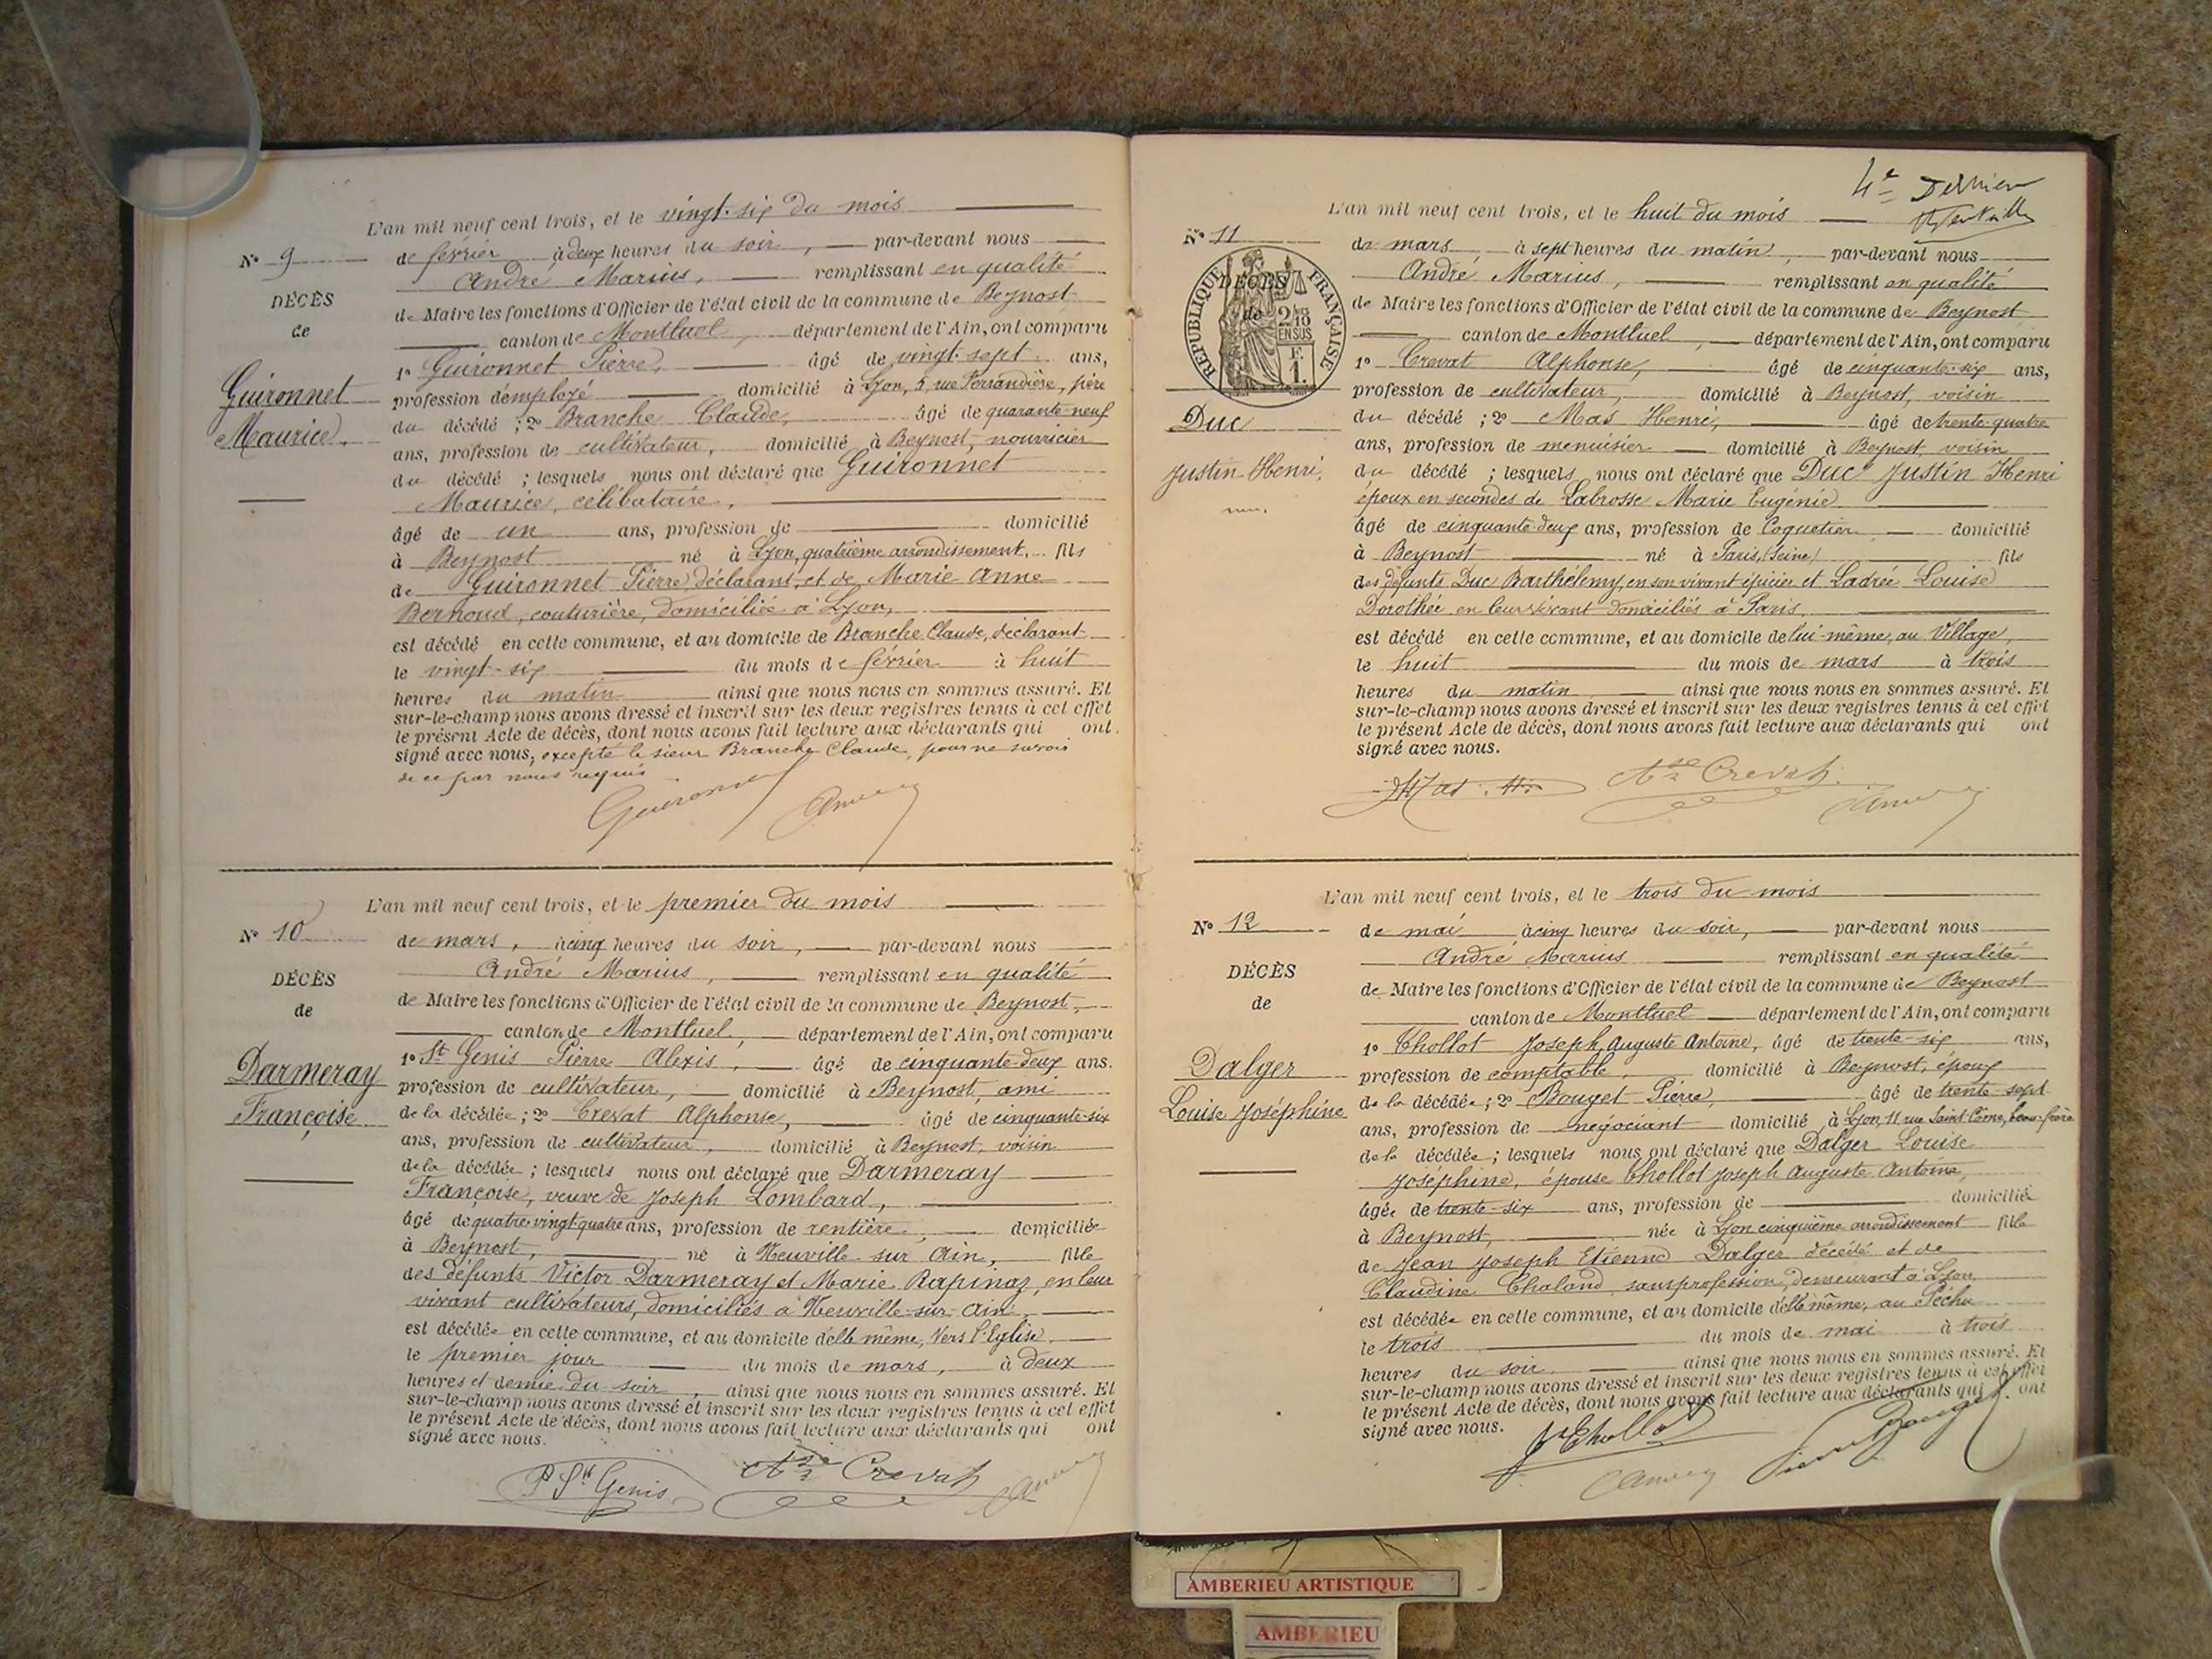 L'an mil neuf cent trois, et le vingt-six du mois
N° 9
de février à deux heures du soir, par-devant nous
André Marius, remplissant en qualité
DÉCÈS
de Maire les fonctions d'Officier de l'état civil de la commune de Beynost
de
canton de Montluel, département de l'Ain, ont comparu
1° Guironnet Pierre, âgé de vingt-sept ans,
Guironnet
profession d'employé domicilié à Lyon, 5, rue Persandière, père
du décédé ; 2° Branche Claude, âgé de quarante-neuf
Maurice.
ans, profession de cultivateur, domicilié à Beynost, nourricier
du décédé ; lesquels nous ont déclaré que Guironnet
Maurice, célibataire,
âgé de un ans, profession de domicilié
à Beynost né à Lyon, quatrième arrondissement, fils
de Guironnet Pierre, déclarant, et de Marie Anne
Bernoud, couturière, domiciliée à Lyon,
est décédé en cette commune, et au domicile de Branche Claude, déclarant
le vingt-six du mois de février à huit
heures du matin ainsi que nous nous en sommes assuré. Et
sur-le-champ nous avons dressé et inscrit sur les deux registres tenus à cet effet
le présent Acte de décès, dont nous avons fait lecture aux déclarants qui ont
signé avec nous, excepté le sieur Branche Claude, pour ne savoir
de ce par nous requis
L'an mil neuf cent trois, et le premier du mois
N° 10
de mars, à cinq heures du soir, par-devant nous
André Marius, remplissant en qualité
DÉCÈS
de Maire les fonctions d'Officier de l'état civil de la commune de Beynost,
de
canton de Montluel, département de l'Ain, ont comparu
1° St Genis Pierre Alexis, âgé de cinquante-deux ans.
Darmeray
profession de cultivateur, domicilié à Beynost, ami
Françoise.
de la décédée ; 2° Crevat Alphonse, âgé de cinquante-six
ans, profession de cultivateur, domicilié à Beynost, voisin
de la décédée ; lesquels nous ont déclaré que Darmeray
Françoise, veuve de Joseph Lombard,
âgé de quatre-vingt-quatre ans, profession de rentière, domiciliée
à Beynost, né à Neuville sur Ain, fille
des défunts Victor Darmeray et Marie Rapinaz, en leur
vivant cultivateurs, domiciliés à Neuville-sur-Ain,
est décédée en cette commune, et au domicile d'elle même, Vers l'Eglise.
le premier jour du mois de mars, à deux
heures et demie du soir, ainsi que nous nous en sommes assuré. Et
sur-le-champ nous avons dressé et inscrit sur les deux registres tenus à cet effet
le présent Acte de décès, dont nous avons fait lecture aux déclarants qui ont
signé avec nous.
P St Genis Crevat
4e Dernier
L'an mil neuf cent trois, et le huit du mois
N° 11
de mars à sept heures du matin, par-devant nous
André Marius, remplissant en qualité
RÉPUBLIQUE FRANÇAISE
DÉCÈS
de
2/10 EN SUS
F. 1.
de Maire les fonctions d'Officier de l'état civil de la commune de Beynost
canton de Montluel, département de l'Ain, ont comparu
1° Crevat Alphonse, âgé de cinquante-six ans,
profession de cultivateur, domicilié à Beynost, voisin
Duc
du décédé ; 2° Mas Henri, âgé de trente-quatre
ans, profession de menuisier domicilié à Beynost, voisin
Justin Henri.
du décédé ; lesquels nous ont déclaré que Duc Justin Henri
époux en secondes de Labrosse Marie Eugénie
âgé de cinquante-deux ans, profession de Coquetier domicilié
à Beynost né à Paris, (Seine) fils
des défunts Duc Barthélemy, en son vivant épicier et Ladrée Louise
Dorothée en leur vivant domiciliés à Paris
est décédé en cette commune, et au domicile de lui-même, au Village,
le huit du mois de mars à trois
heures du matin ainsi que nous nous en sommes assuré. Et
sur-le-champ nous avons dressé et inscrit sur les deux registres tenus à cet effet
le présent Acte de décès, dont nous avons fait lecture aux déclarants qui ont
signé avec nous.
Mas H. Crevat
L'an mil neuf cent trois, et le trois du mois
N° 12
de mai à cinq heures du soir, par-devant nous
André Marius remplissant en qualité
DÉCÈS
de Maire les fonctions d'Officier de l'état civil de la commune de Beynost
de
canton de Montluel département de l'Ain, ont comparu
1° Chollot Joseph, Auguste Antoine, âgé de trente-six ans,
Dalger
profession de comptable, domicilié à Beynost, époux
de la décédée ; 2° Bouget Pierre âgé de trente-sept
Louise Joséphine
ans, profession de négociant domicilié à Lyon, 11 rue Saint Côme, beau-frère
de la décédée ; lesquels nous ont déclaré que Dalger Louise
Joséphine, épouse Chollot Joseph Auguste Antoine,
âgée de trente-six ans, profession de domicilié
à Beynost, née à Lyon cinquième arrondissement fille
de Jean Joseph Etienne Dalger décédé et de
Claudine Chaland, sans profession, demeurant à Lyon
est décédée en cette commune, et au domicile d'elle même, au Péchu
le trois du mois de mai à trois
heures du soir, ainsi que nous nous en sommes assuré. Et
sur-le-champ nous avons dressé et inscrit sur les deux registres tenus à cet effet
le présent Acte de décès, dont nous avons fait lecture aux déclarants qui ont
signé avec nous.
Chollot Pierre Bouget
AMBERIEU ARTISTIQUE
AMBERIEU